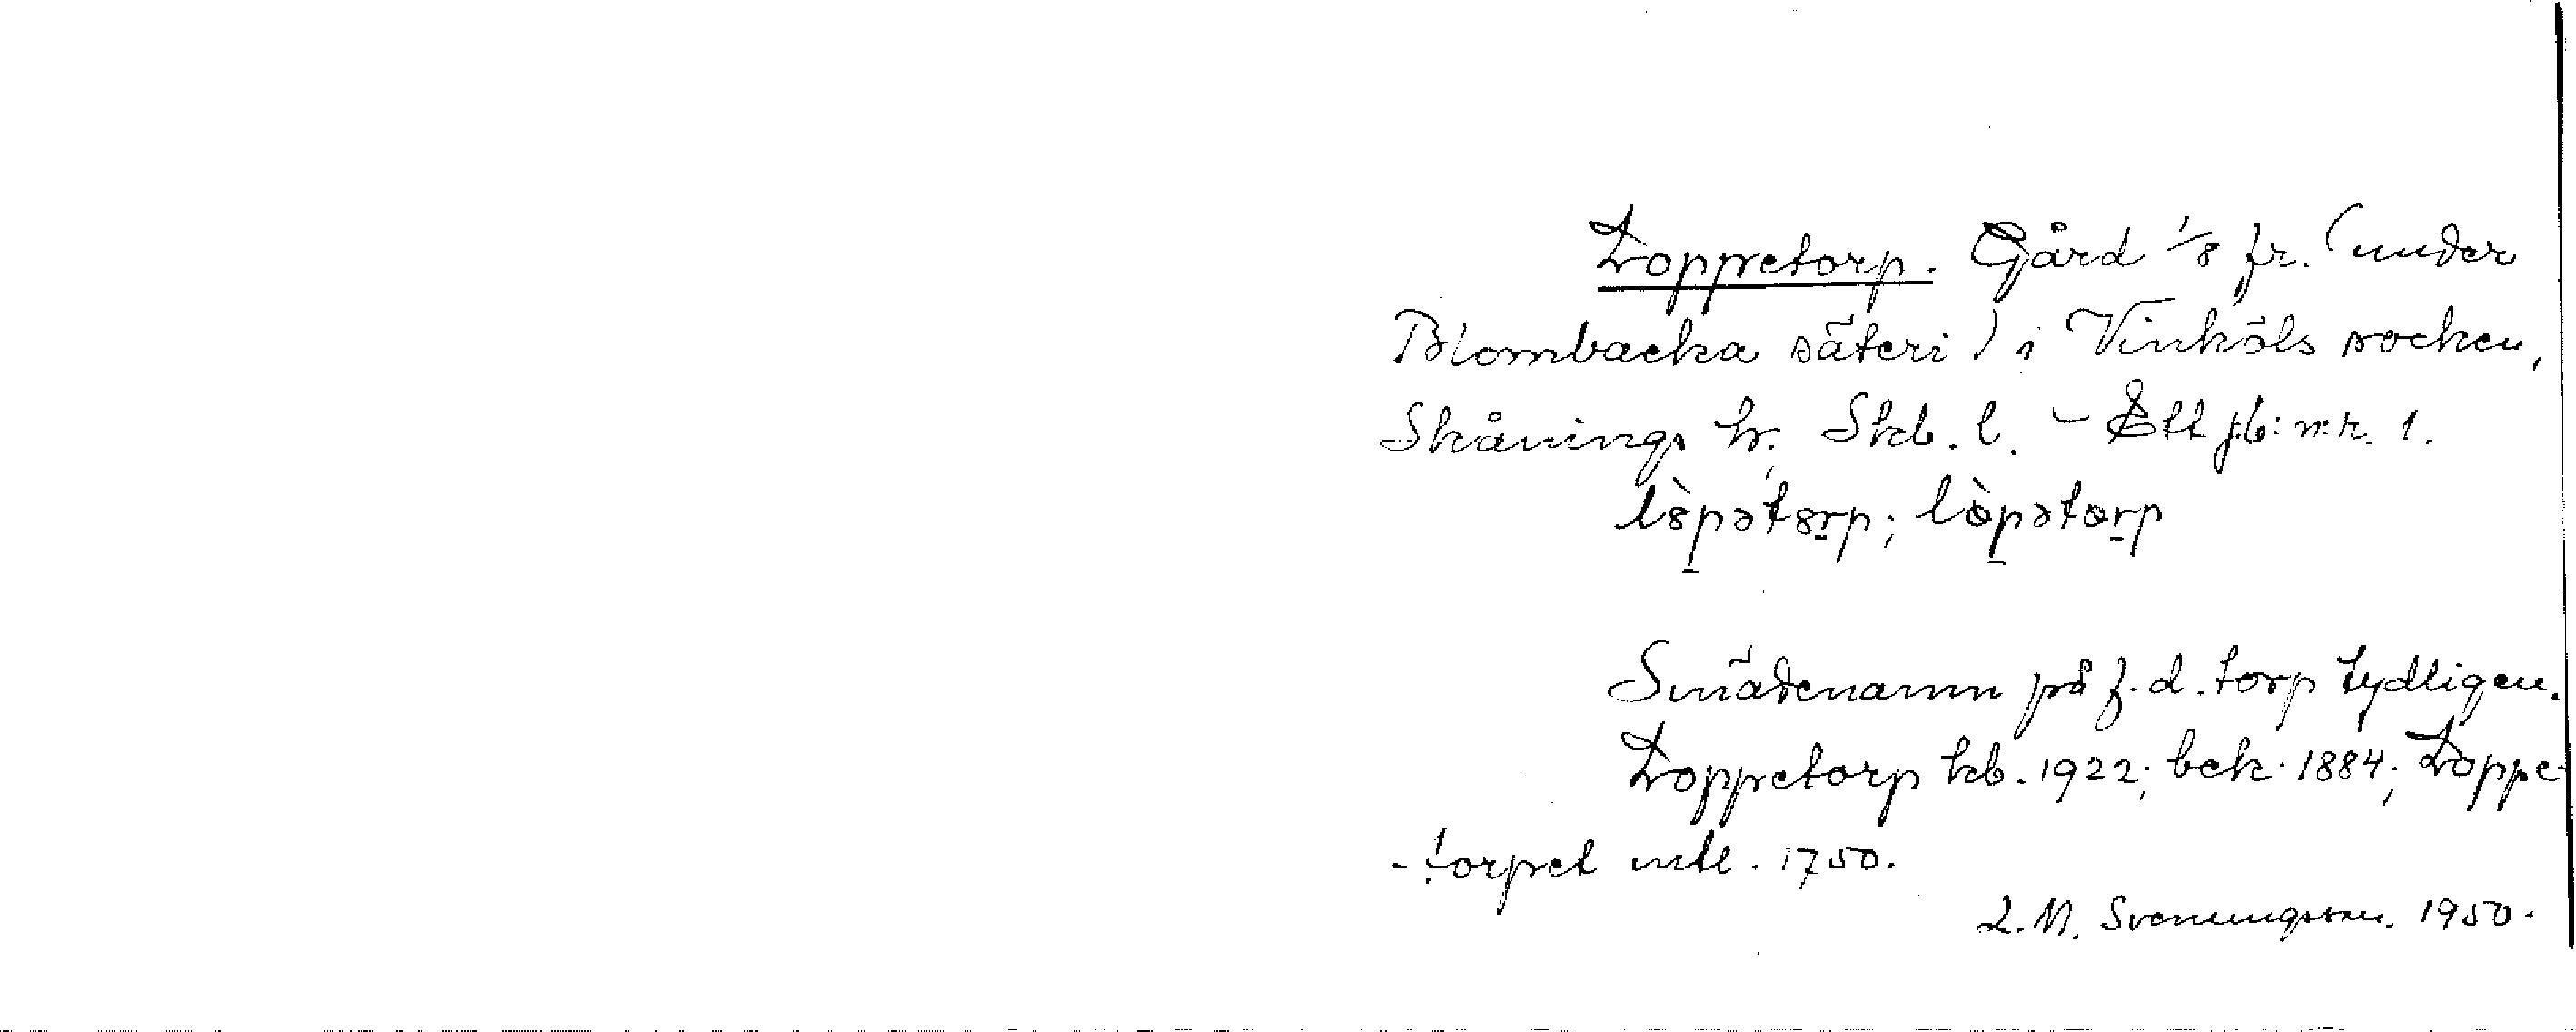 Loppetorp. Gård 1/8 fr. (under
Blombacka säteri) i Vinköls socken,
Skånings hr, Skb. l. – Ett jb: n:r. 1.
Smädenamn på f.d. torp tydligen.
Loppetorp kb. 1922; bek. 1884; Loppe-
-torpet mtl. 1750.
L.M. Svenungsson. 1950.